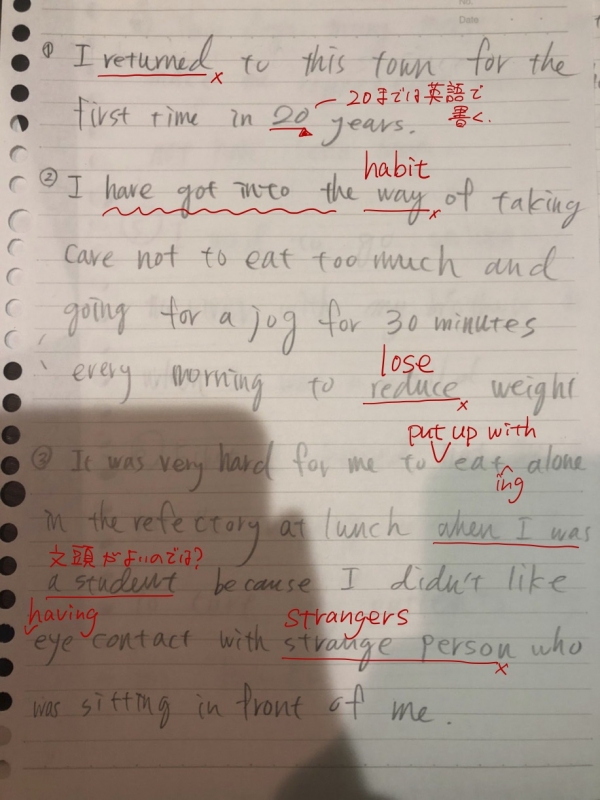 No.
Date
① I returned to this town for the
20までは英語で
書く.
first time in 20 years.
habit
② I have got into the way of taking
care not to eat too much and
going for a jog for 30 minutes
lose
every morning to reduce weight
put up with
③ It was very hard for me to eat alone
ing
in the refectory at lunch when I was
文頭がよいのでは?
a student because I didn't like
having strangers
eye contact with strange person who
was sitting in front of me.